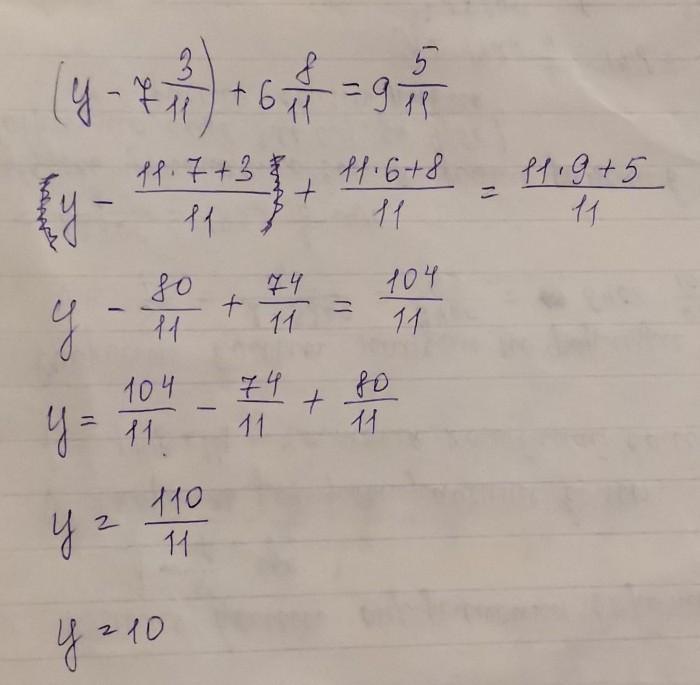 (y - 7 3/11) + 6 8/11 = 9 5/11
y - (11·7+3)/11 + (11·6+8)/11 = (11·9+5)/11
y - 80/11 + 74/11 = 104/11
y = 104/11 - 74/11 + 80/11
y = 110/11
y = 10